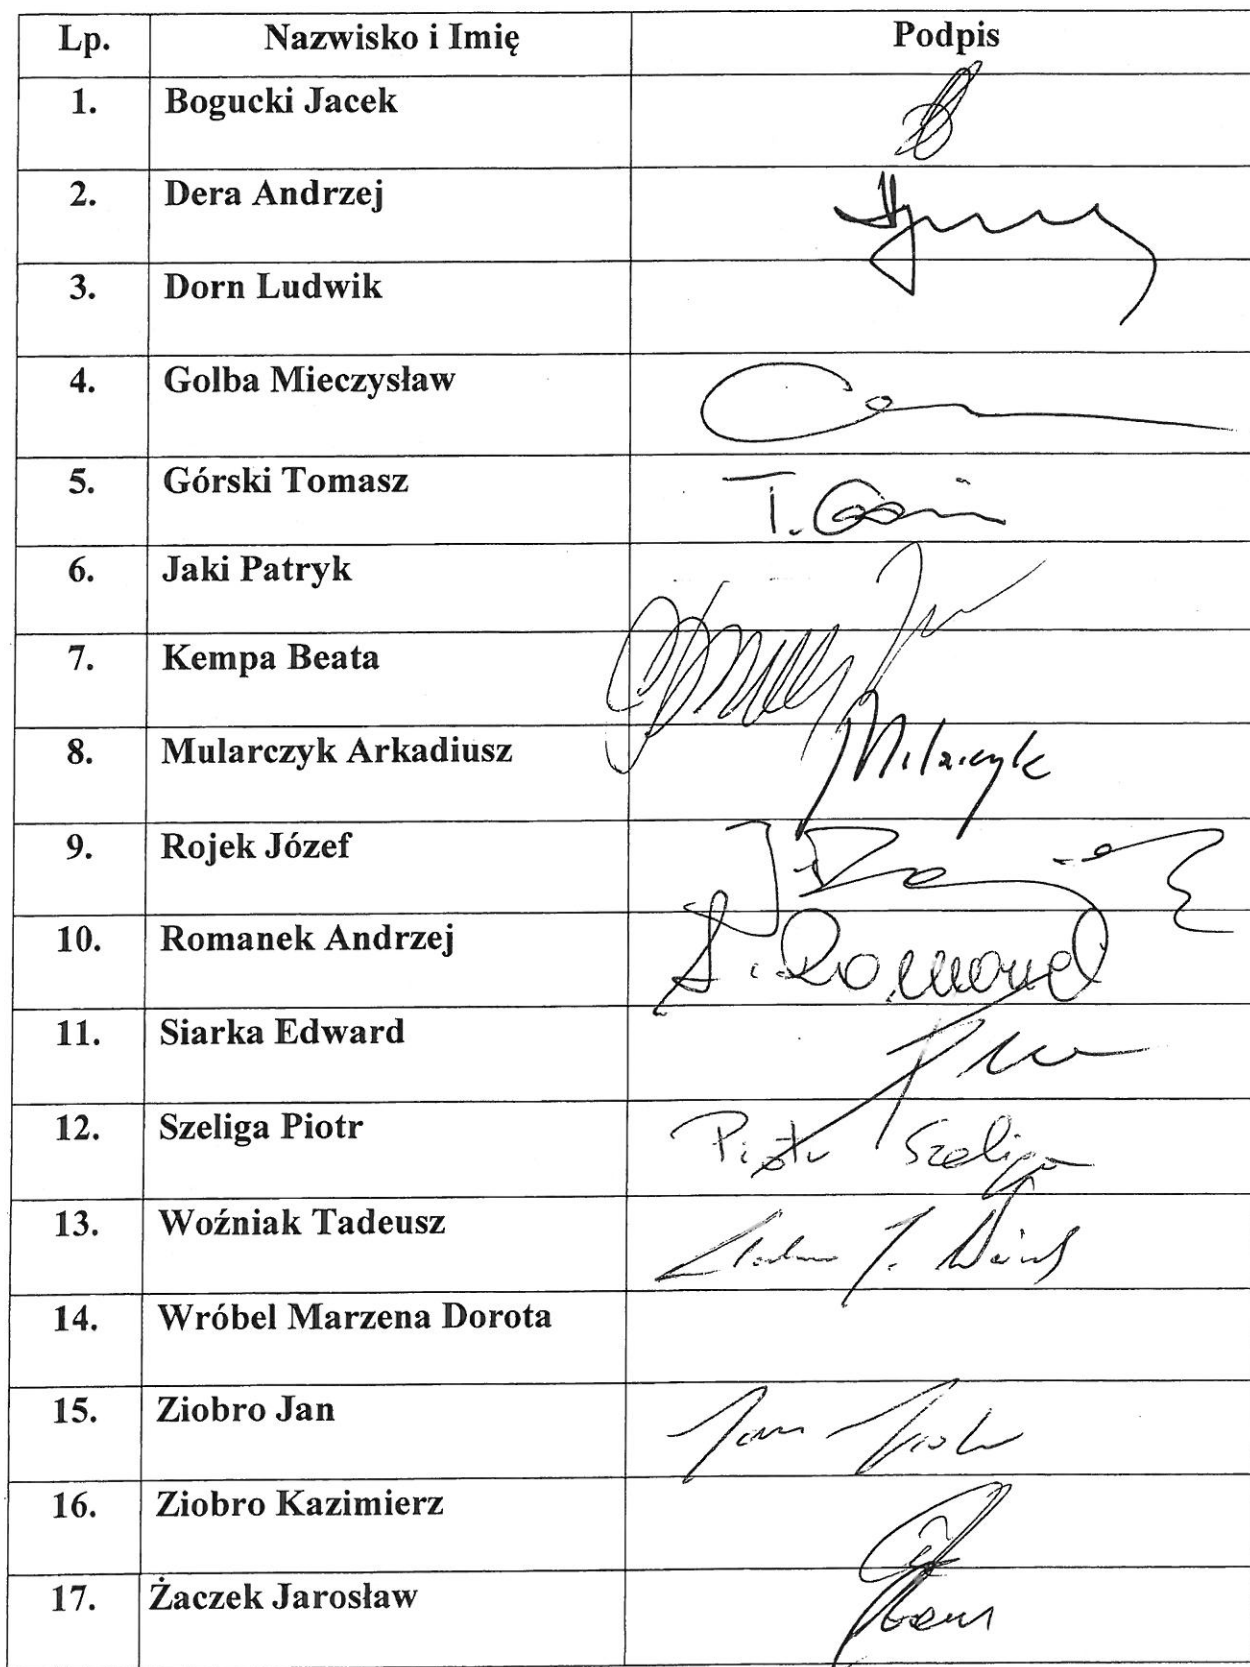 Lp. Nazwisko i Imię Podpis
1. Bogucki Jacek
2. Dera Andrzej
3. Dorn Ludwik
4. Golba Mieczysław
5. Górski Tomasz T. 
6. Jaki Patryk
7. Kempa Beata
8. Mularczyk Arkadiusz
9. Rojek Józef
10. Romanek Andrzej
11. Siarka Edward
12. Szeliga Piotr Piotr Szeliga
13. Woźniak Tadeusz
14. Wróbel Marzena Dorota
15. Ziobro Jan Jan
16. Ziobro Kazimierz
17. Żaczek Jarosław